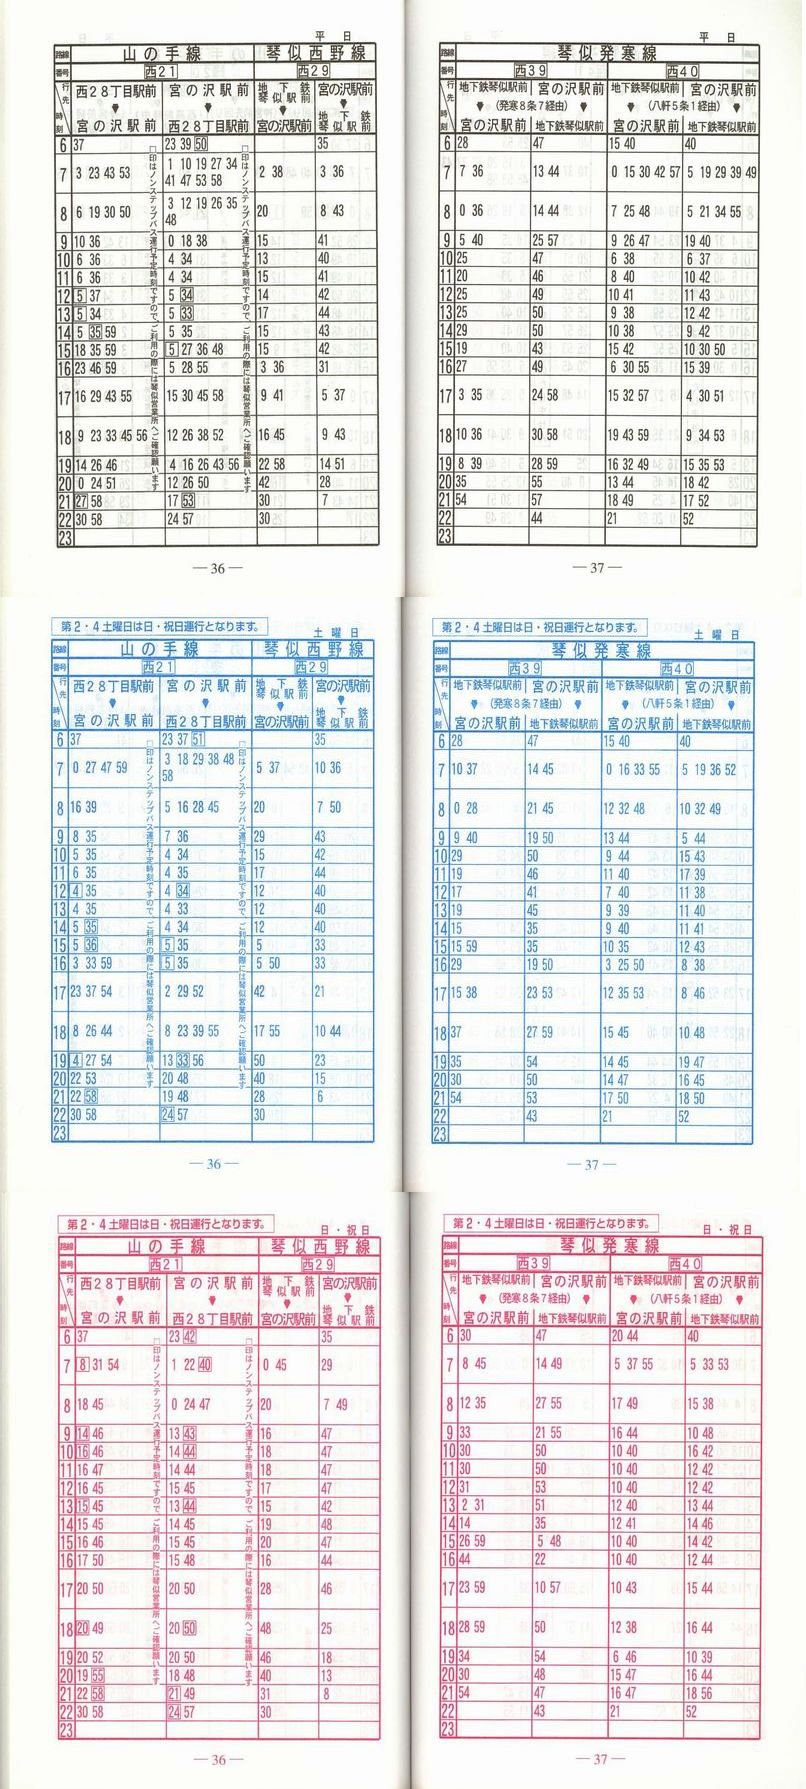 平日
路線 山の手線 琴似西野線
番号 西21 西29
行先 時刻 西28丁目駅前 宮の沢駅前 宮の沢駅前 西28丁目駅前 地下鉄琴似駅前 宮の沢駅前 宮の沢駅前 地下鉄琴似駅前
□印はノンステップバス運行予定時刻ですので、ご利用の際には琴似営業所へご確認願います
6 37 23 39 50 35
7 3 23 43 53 1 10 19 27 34 41 47 53 58 2 38 3 36
8 6 19 30 50 3 12 19 26 35 48 20 8 43
9 10 36 0 18 38 15 41
10 6 36 4 34 13 40
11 6 36 4 34 15 41
12 5 37 5 34 14 42
13 5 34 5 33 17 44
14 5 35 59 5 35 15 43
15 18 35 59 5 27 36 48 15 42
16 23 46 59 5 28 55 3 36 31
17 16 29 43 55 15 30 45 58 9 41 5 37
18 9 23 33 45 56 12 26 38 52 16 45 9 43
19 14 26 46 4 16 26 43 56 22 58 14 51
20 0 24 51 12 26 50 42 28
21 27 58 17 53 30 7
22 30 58 24 57 30
23
— 36 —
平日
路線 琴似発寒線
番号 西39 西40
行先 時刻 地下鉄琴似駅前 宮の沢駅前 (発寒8条7経由) 宮の沢駅前 地下鉄琴似駅前 地下鉄琴似駅前 宮の沢駅前 (八軒5条1経由) 宮の沢駅前 地下鉄琴似駅前
6 28 47 15 40 40
7 7 36 13 44 0 15 30 42 57 5 19 29 39 49
8 0 36 14 44 7 25 48 5 21 34 55
9 5 40 25 57 9 26 47 19 40
10 25 47 6 38 6 37
11 20 46 8 40 10 42
12 25 49 10 41 11 43
13 25 50 9 38 12 42
14 29 50 10 38 9 42
15 19 43 15 42 10 30 50
16 27 49 6 30 55 15 39
17 3 35 24 58 15 32 57 4 30 51
18 10 36 30 58 19 43 59 9 34 53
19 8 39 28 59 16 32 49 15 35 53
20 35 55 13 44 18 42
21 54 57 18 49 17 52
22 44 21 52
23
— 37 —
第2・4土曜日は日・祝日運行となります。
土曜日
路線 山の手線 琴似西野線
番号 西21 西29
行先 時刻 西28丁目駅前 宮の沢駅前 宮の沢駅前 西28丁目駅前 地下鉄琴似駅前 宮の沢駅前 宮の沢駅前 地下鉄琴似駅前
□印はノンステップバス運行予定時刻ですので、ご利用の際には琴似営業所へご確認願います
6 37 23 37 51 35
7 0 27 47 59 3 18 29 38 48 58 5 37 10 36
8 16 39 5 16 28 45 20 7 50
9 8 35 7 36 29 43
10 5 35 4 34 15 42
11 6 35 4 35 17 44
12 4 35 4 34 12 40
13 4 35 4 33 12 40
14 5 35 4 34 12 40
15 5 36 5 35 5 33
16 3 33 59 5 35 5 50 33
17 23 37 54 2 29 52 42 21
18 8 26 44 8 23 39 55 17 55 10 44
19 4 27 54 13 33 56 50 23
20 22 53 20 48 40 15
21 22 58 19 48 28 6
22 30 58 24 57 30
23
— 36 —
第2・4土曜日は日・祝日運行となります。
土曜日
路線 琴似発寒線
番号 西39 西40
行先 時刻 地下鉄琴似駅前 宮の沢駅前 (発寒8条7経由) 宮の沢駅前 地下鉄琴似駅前 地下鉄琴似駅前 宮の沢駅前 (八軒5条1経由) 宮の沢駅前 地下鉄琴似駅前
6 28 47 15 40 40
7 10 37 14 45 0 16 33 55 5 19 36 52
8 0 28 21 45 12 32 48 10 32 49
9 9 40 19 50 13 44 5 44
10 29 50 9 44 15 43
11 19 46 11 40 17 39
12 17 41 7 40 11 38
13 19 45 9 39 11 40
14 15 35 9 40 11 41
15 15 59 35 10 35 12 43
16 29 19 50 3 25 50 8 38
17 15 38 23 53 12 35 53 8 46
18 37 27 59 15 45 10 48
19 35 54 14 45 19 47
20 30 50 14 47 16 45
21 54 53 17 50 18 50
22 43 21 52
23
— 37 —
第2・4土曜日は日・祝日運行となります。
日・祝日
路線 山の手線 琴似西野線
番号 西21 西29
行先 時刻 西28丁目駅前 宮の沢駅前 宮の沢駅前 西28丁目駅前 地下鉄琴似駅前 宮の沢駅前 宮の沢駅前 地下鉄琴似駅前
□印はノンステップバス運行予定時刻ですので、ご利用の際には琴似営業所へご確認願います
6 37 23 42 35
7 8 31 54 1 22 40 0 45 29
8 18 45 0 24 47 20 7 49
9 14 46 13 43 16 47
10 16 46 14 44 18 47
11 16 47 14 44 18 47
12 16 45 15 45 17 47
13 15 45 13 44 15 42
14 15 45 14 45 19 48
15 16 46 15 45 20 47
16 17 50 15 48 16 44
17 20 50 20 50 28 46
18 20 49 20 50 48 25
19 20 52 20 50 46 18
20 19 55 18 48 40 13
21 22 58 21 49 31 8
22 30 58 24 57 30
23
— 36 —
第2・4土曜日は日・祝日運行となります。
日・祝日
路線 琴似発寒線
番号 西39 西40
行先 時刻 地下鉄琴似駅前 宮の沢駅前 (発寒8条7経由) 宮の沢駅前 地下鉄琴似駅前 地下鉄琴似駅前 宮の沢駅前 (八軒5条1経由) 宮の沢駅前 地下鉄琴似駅前
6 30 47 20 44 40
7 8 45 14 49 5 37 55 5 33 53
8 12 35 27 55 17 49 15 38
9 33 21 55 16 44 10 48
10 30 50 10 40 16 42
11 30 50 10 40 12 42
12 31 53 10 40 12 42
13 2 31 51 10 40 13 44
14 14 35 12 41 14 46
15 26 59 5 48 10 40 14 42
16 44 22 10 40 12 44
17 23 59 10 57 10 43 15 44
18 28 59 50 12 38 16 44
19 34 54 6 46 10 39
20 30 48 15 47 16 44
21 54 47 16 47 18 56
22 43 21 52
23
— 37 —